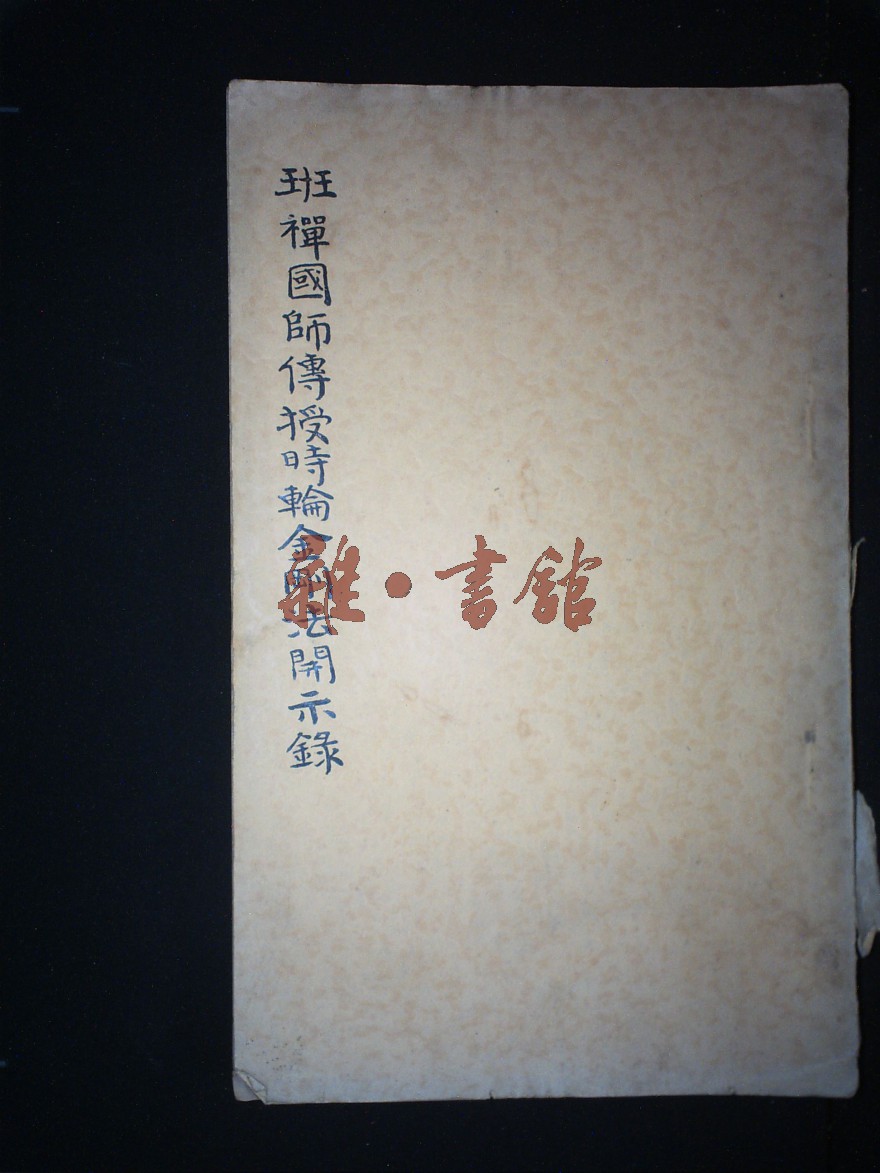 班禪國師傳授時輪金剛法開示錄
雜·書館